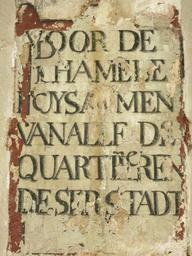 VOOR DE
LHAMELE
HOYSARMEN
VANALLE DE
QUARTIEREN
DESER STADT